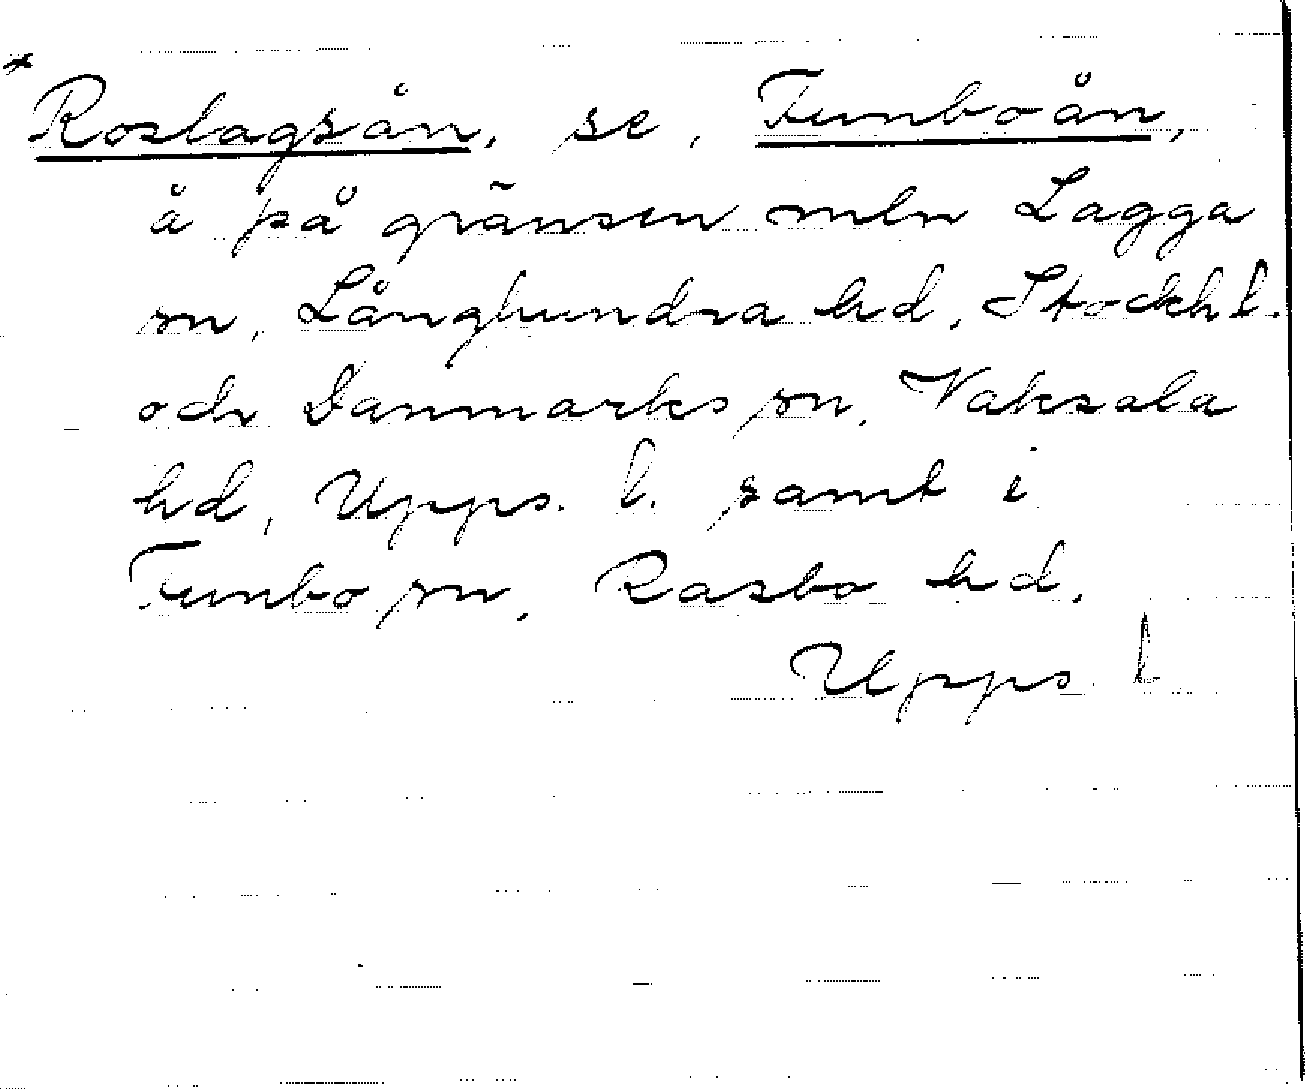 *Roslagsån, se, Funboån,
å på gränsen mln Lagga
sn, Långhundra hd, Stockh l.
och Danmarks sn, Vaksala
hd, Upps. l. samt i
Funbo sn, Rasbo hd,
Upps. l